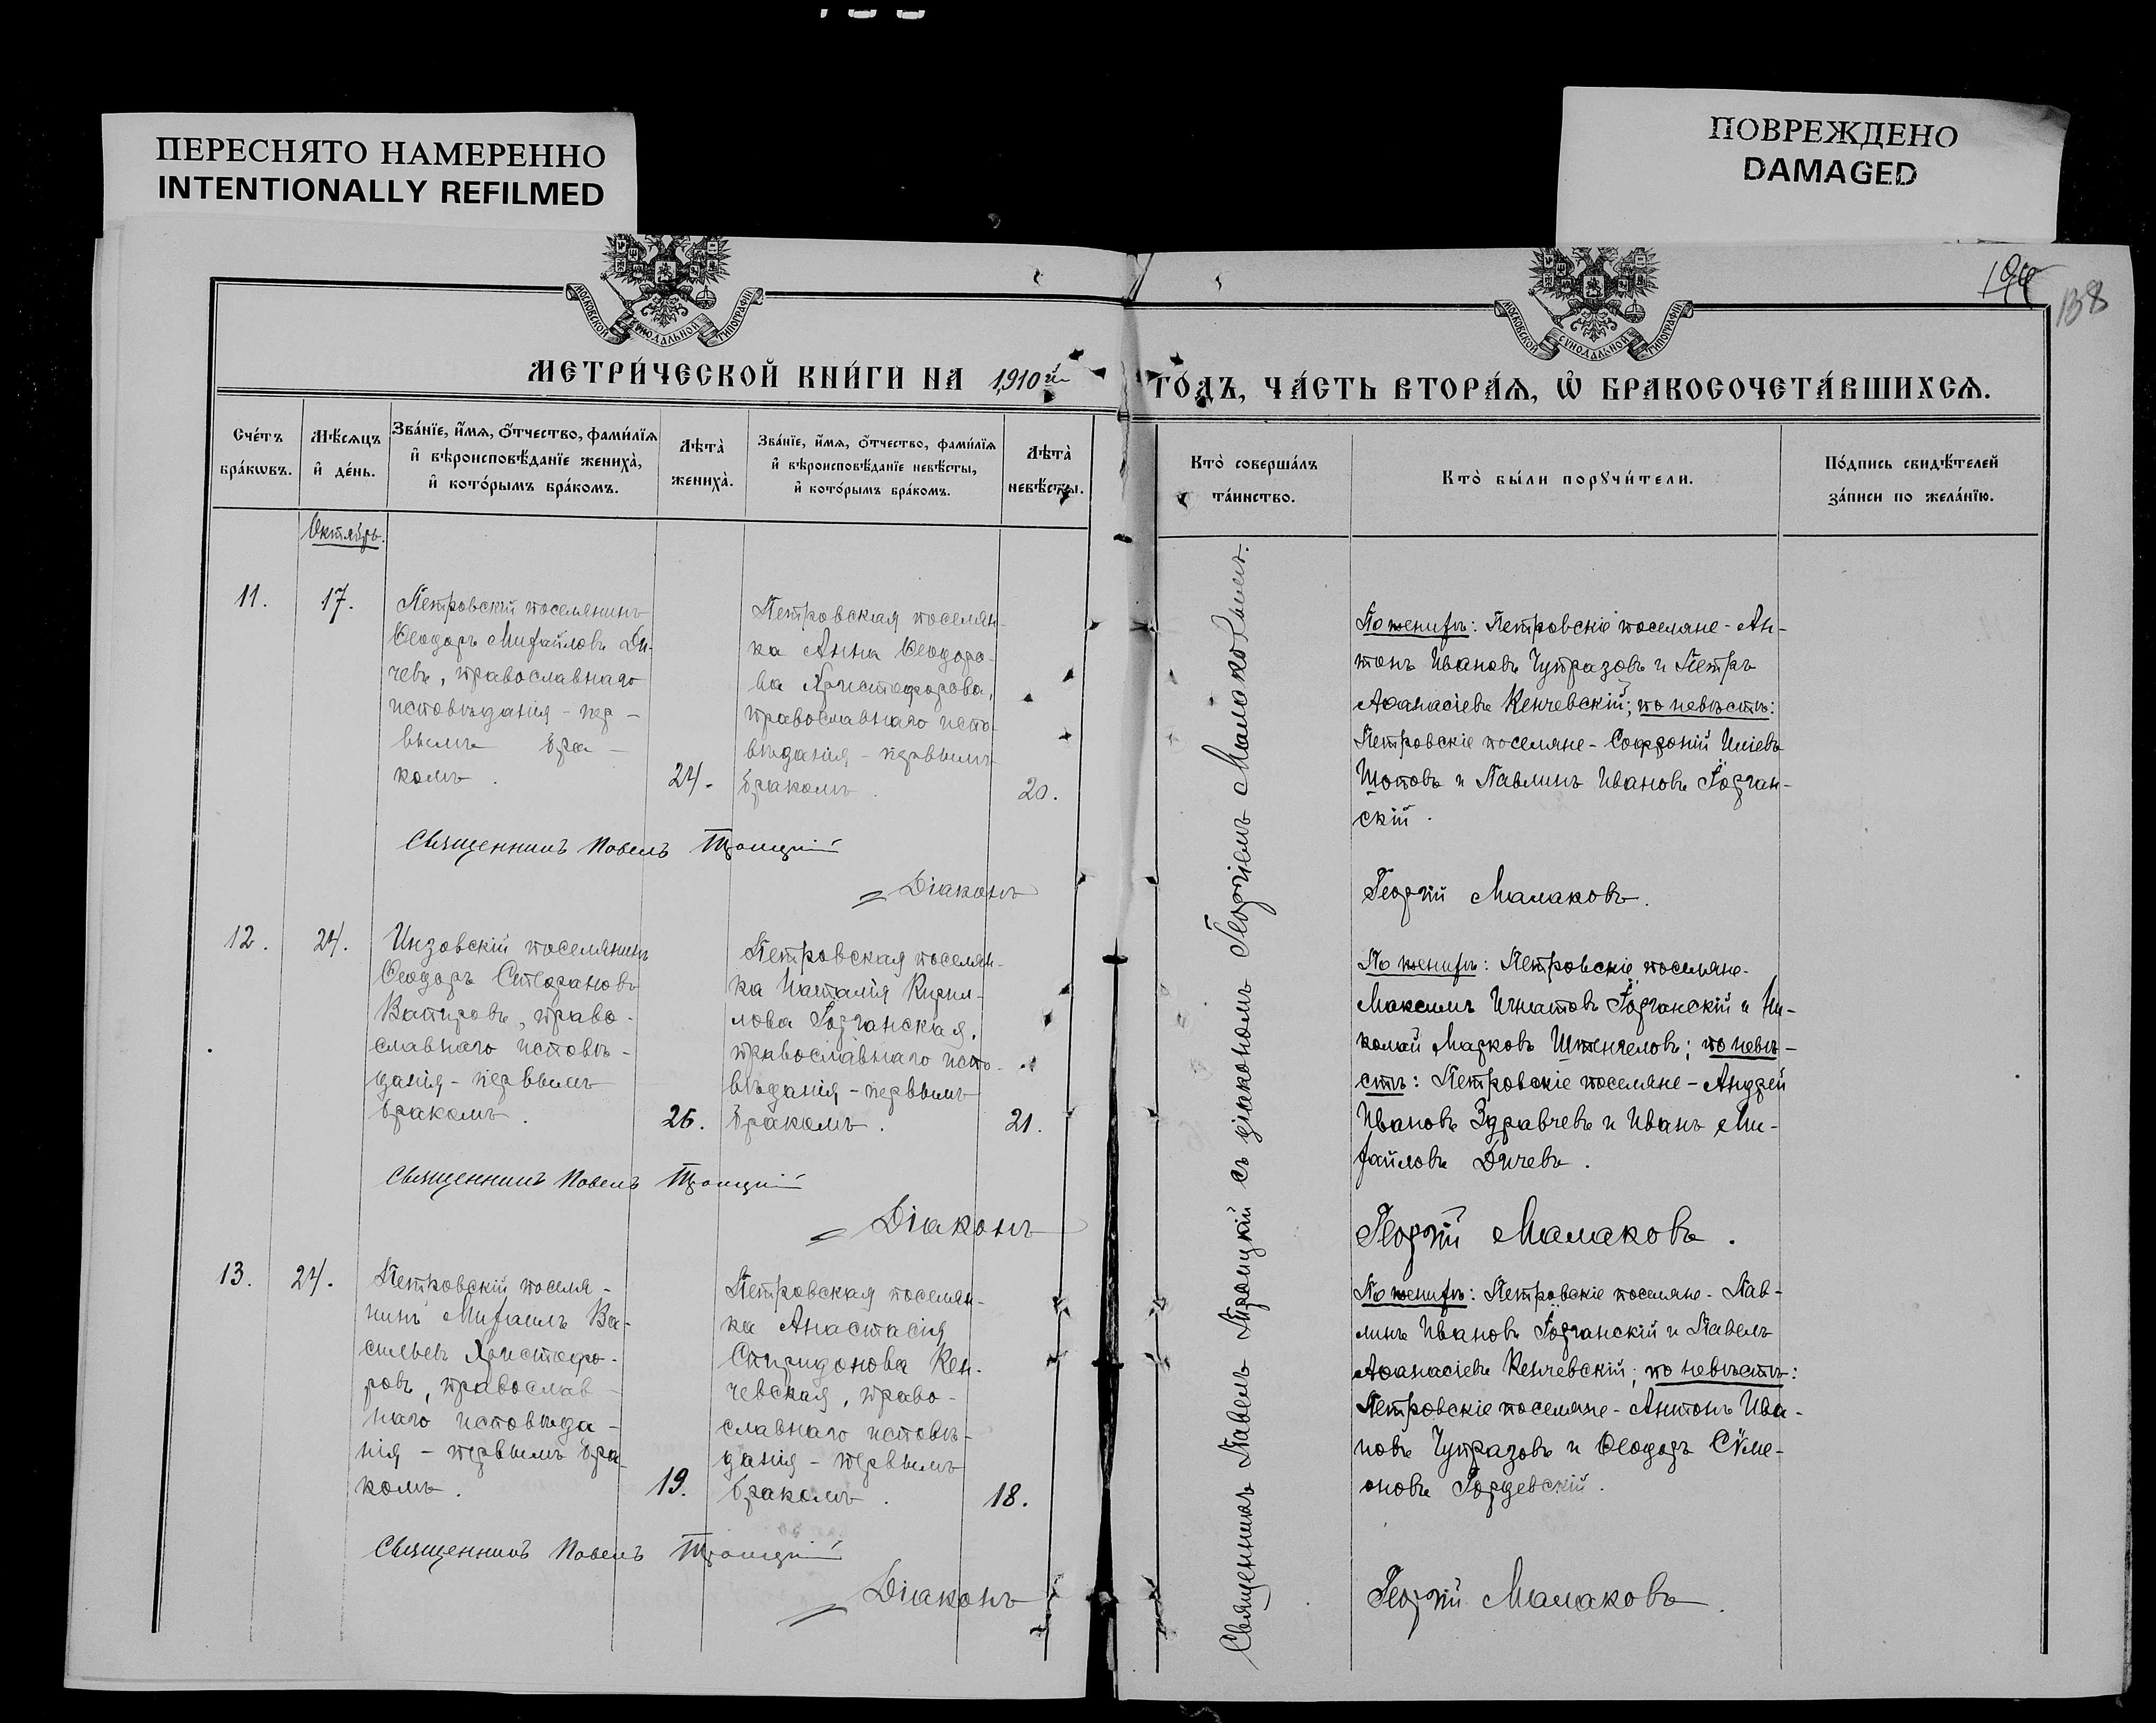 ПЕРЕСНЯТО НАМЕРЕННО
INTENTIONALLY REFILMED
ПОВРЕЖДЕНО
DAMAGED
МОСКОВСКОЙ СѴНОДАЛЬНОЙ ТИПОГРАФІИ
МОСКОВСКОЙ СѴНОДАЛЬНОЙ ТИПОГРАФІИ
138
МЕТРИ́ЧЕСКОЙ КНИ́ГИ НА 1910 й
ГО́ДЪ, ЧА́СТЬ ВТОРА́Ѧ, Ѡ҆ БРАКОСОЧЕТА́ВШИХСѦ.
Сче́тъ бра́кѡвъ.
Мѣ́сѧцъ и҆ де́нь.
Зва́нїе, и҆́мѧ, ѻ҆́тчество, фами́лїѧ
и҆ вѣроисповѣ́данїе жениха̀,
и҆ кото́рымъ бра́комъ.
Лѣта̀ жениха̀.
Зва́нїе, и҆́мѧ, ѻ҆́тчество, фами́лїѧ
и҆ вѣроисповѣ́данїе невѣ́сты,
и҆ кото́рымъ бра́комъ.
Лѣта̀ невѣ́сты.
Кто̀ соверша́лъ та́инство.
Кто̀ бы́ли порꙋчи́тели.
По́дпись свидѣ́телей
за́писи по жела́нїю.
Октябрь.
11.
17.
Петровскій поселянинъ
Ѳеодоръ Михайловъ Ди-
чевъ, православнаго
исповѣданія - пер-
вымъ бра-
комъ.
24.
Петровская поселян-
ка Анна Ѳеодоро-
ва Христофорова,
православнаго испо-
вѣданія - первымъ
бракомъ.
20.
Священникъ Павелъ Троицкій
Діаконъ
Священникъ Павелъ Троицкій съ діакономъ Георгіемъ Малаковымъ.
По женихѣ: Петровскіе поселяне - Ан-
тонъ Ивановъ Чупразовъ и Петръ
Аѳанасіевъ Кенчевскій; по невѣстѣ:
Петровскіе поселяне - Софроній Иліевъ
Шоповъ и Павлинъ Ивановъ Горган-
скій.
Георгій Малаковъ.
12.
24.
Инзовскій поселянинъ
Ѳеодоръ Стефановъ
Вапировъ, право-
славнаго исповѣ-
данія - первымъ
бракомъ.
26.
Петровская поселян-
ка Наталія Кирил-
лова Горганская,
православнаго испо-
вѣданія - первымъ
бракомъ.
21.
Священникъ Павелъ Троицкій
Діаконъ
По женихѣ: Петровскіе поселяне -
Максимъ Игнатовъ Горганскій и Ни-
колай Марковъ Штенгеловъ; по невѣ-
стѣ: Петровскіе поселяне - Андрей
Ивановъ Здравчевъ и Иванъ Ми-
хайловъ Дичевъ.
Георгій Малаковъ.
13.
24.
Петровскій поселя-
нинъ Михаилъ Ва-
сильевъ Христофо-
ровъ, православ-
наго исповѣда-
нія - первымъ бра-
комъ.
19.
Петровская поселян-
ка Анастасія
Спиридонова Кен-
чевская, право-
славнаго исповѣ-
данія - первымъ
бракомъ.
18.
Священникъ Павелъ Троицкій
Діаконъ
По женихѣ: Петровскіе поселяне - Пав-
линъ Ивановъ Горганскій и Павелъ
Аѳанасіевъ Кенчевскій; по невѣстѣ:
Петровскіе поселяне - Антонъ Ива-
новъ Чупразовъ и Ѳеодоръ Сѵме-
оновъ Гордевскій.
Георгій Малаковъ.